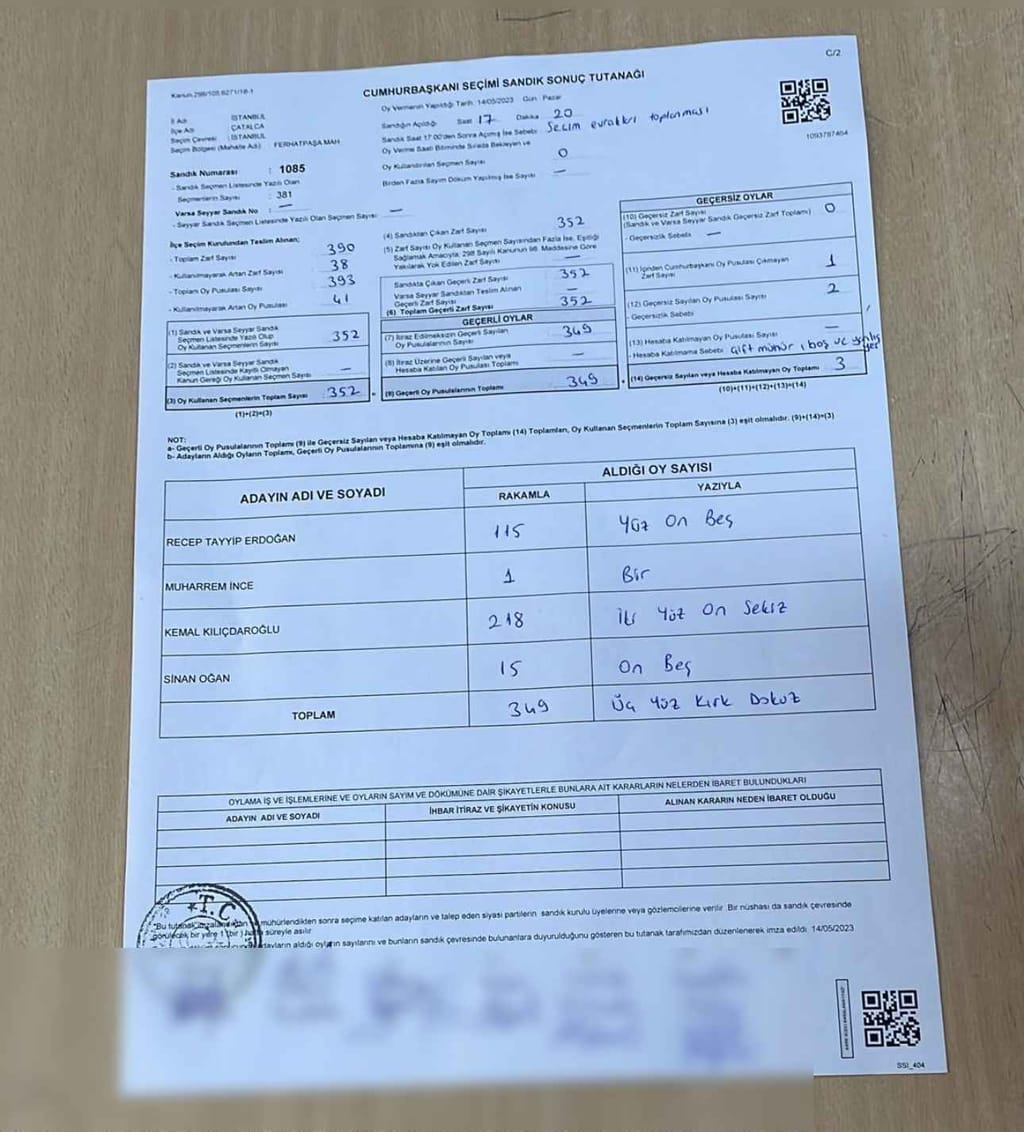 C/2
Kanun.298/105,6271/18-1
CUMHURBAŞKANI SEÇİMİ SANDIK SONUÇ TUTANAĞI
İl Adı : İSTANBUL
İlçe Adı : ÇATALCA
Seçim Çevresi : İSTANBUL
Seçim Bölgesi (Mahalle Adı) : FERHATPAŞA MAH
Sandık Numarası : 1085
- Sandık Seçmen Listesinde Yazılı Olan
Seçmenlerin Sayısı : 381
Varsa Seyyar Sandık No : —
- Seyyar Sandık Seçmen Listesinde Yazılı Olan Seçmen Sayısı : —
Oy Vermenin Yapıldığı Tarih: 14/05/2023 Gün: Pazar
Sandığın Açıldığı Saat 17 Dakika 20
Sandık Saat 17:00'den Sonra Açılmış İse Sebebi: Seçim evrakları toplanması
Oy Verme Saati Bitiminde Sırada Bekleyen ve
Oy Kullandırılan Seçmen Sayısı 0
Birden Fazla Sayım Döküm Yapılmış İse Sayısı —
1093787464
İlçe Seçim Kurulundan Teslim Alınan;
- Toplam Zarf Sayısı 390
- Kullanılmayarak Artan Zarf Sayısı 38
- Toplam Oy Pusulası Sayısı 393
- Kullanılmayarak Artan Oy Pusulası 41
(1) Sandık ve Varsa Seyyar Sandık
Seçmen Listesinde Yazılı Olup
Oy Kullanan Seçmenlerin Sayısı 352
(2) Sandık ve Varsa Seyyar Sandık
Seçmen Listesinde Kayıtlı Olmayan
Kanun Gereği Oy Kullanan Seçmen Sayısı —
(3) Oy Kullanan Seçmenlerin Toplam Sayısı 352
(1)+(2)=(3)
(4) Sandıktan Çıkan Zarf Sayısı 352
(5) Zarf Sayısı Oy Kullanan Seçmen Sayısından Fazla İse, Eşitliği
Sağlamak Amacıyla; 298 Sayılı Kanunun 98. Maddesine Göre
Yakılarak Yok Edilen Zarf Sayısı —
Sandıkta Çıkan Geçerli Zarf Sayısı 352
Varsa Seyyar Sandıktan Teslim Alınan
Geçerli Zarf Sayısı —
(6) Toplam Geçerli Zarf Sayısı 352
GEÇERLİ OYLAR
(7) İtiraz Edilmeksizin Geçerli Sayılan
Oy Pusulasının Sayısı 349
(8) İtiraz Üzerine Geçerli Sayılan veya
Hesaba Katılan Oy Pusulası Toplamı —
(9) Geçerli Oy Pusulalarının Toplamı 349
GEÇERSİZ OYLAR
(10) Geçersiz Zarf Sayısı 0
(Sandık ve Varsa Seyyar Sandık Geçersiz Zarf Toplamı)
- Geçersizlik Sebebi —
(11) İçinden Cumhurbaşkanı Oy Pusulası Çıkmayan
Zarf Sayısı 1
(12) Geçersiz Sayılan Oy Pusulası Sayısı 2
- Geçersizlik Sebebi
(13) Hesaba Katılmayan Oy Pusulası Sayısı —
- Hesaba Katılmama Sebebi Çift mühür, boş ve yanlış yer
(14) Geçersiz Sayılan veya Hesaba Katılmayan Oy Toplamı 3
(10)+(11)+(12)+(13)=(14)
NOT:
a- Geçerli Oy Pusulalarının Toplamı (9) ile Geçersiz Sayılan veya Hesaba Katılmayan Oy Toplamı (14) Toplamları, Oy Kullanan Seçmenlerin Toplam Sayısına (3) eşit olmalıdır. (9)+(14)=(3)
b- Adayların Aldığı Oyların Toplamı, Geçerli Oy Pusulalarının Toplamına (9) eşit olmalıdır.
ADAYIN ADI VE SOYADI
ALDIĞI OY SAYISI
RAKAMLA YAZIYLA
RECEP TAYYİP ERDOĞAN 115 Yüz On Beş
MUHARREM İNCE 1 Bir
KEMAL KILIÇDAROĞLU 218 İki Yüz On Sekiz
SİNAN OĞAN 15 On Beş
TOPLAM 349 Üç Yüz Kırk Dokuz
OYLAMA İŞ VE İŞLEMLERİNE VE OYLARIN SAYIM VE DÖKÜMÜNE DAİR ŞİKAYETLERLE BUNLARA AİT KARARLARIN NELERDEN İBARET BULUNDUKLARI
ADAYIN ADI VE SOYADI İHBAR İTİRAZ VE ŞİKAYETİN KONUSU ALINAN KARARIN NEDEN İBARET OLDUĞU
T.C
Bu tutanak mühürlendikten sonra seçime katılan adayların ve talep eden siyasi partilerin sandık kurulu üyelerine veya gözlemcilerine verilir. Bir nüshası da sandık çevresinde
görülecek bir yere 1 (bir) hafta süreyle asılır.
adayların aldığı oyların sayılarını ve bunların sandık çevresinde bulunanlara duyurulduğunu gösteren bu tutanak tarafımızdan düzenlenerek imza edildi. 14/05/2023
SSI_404